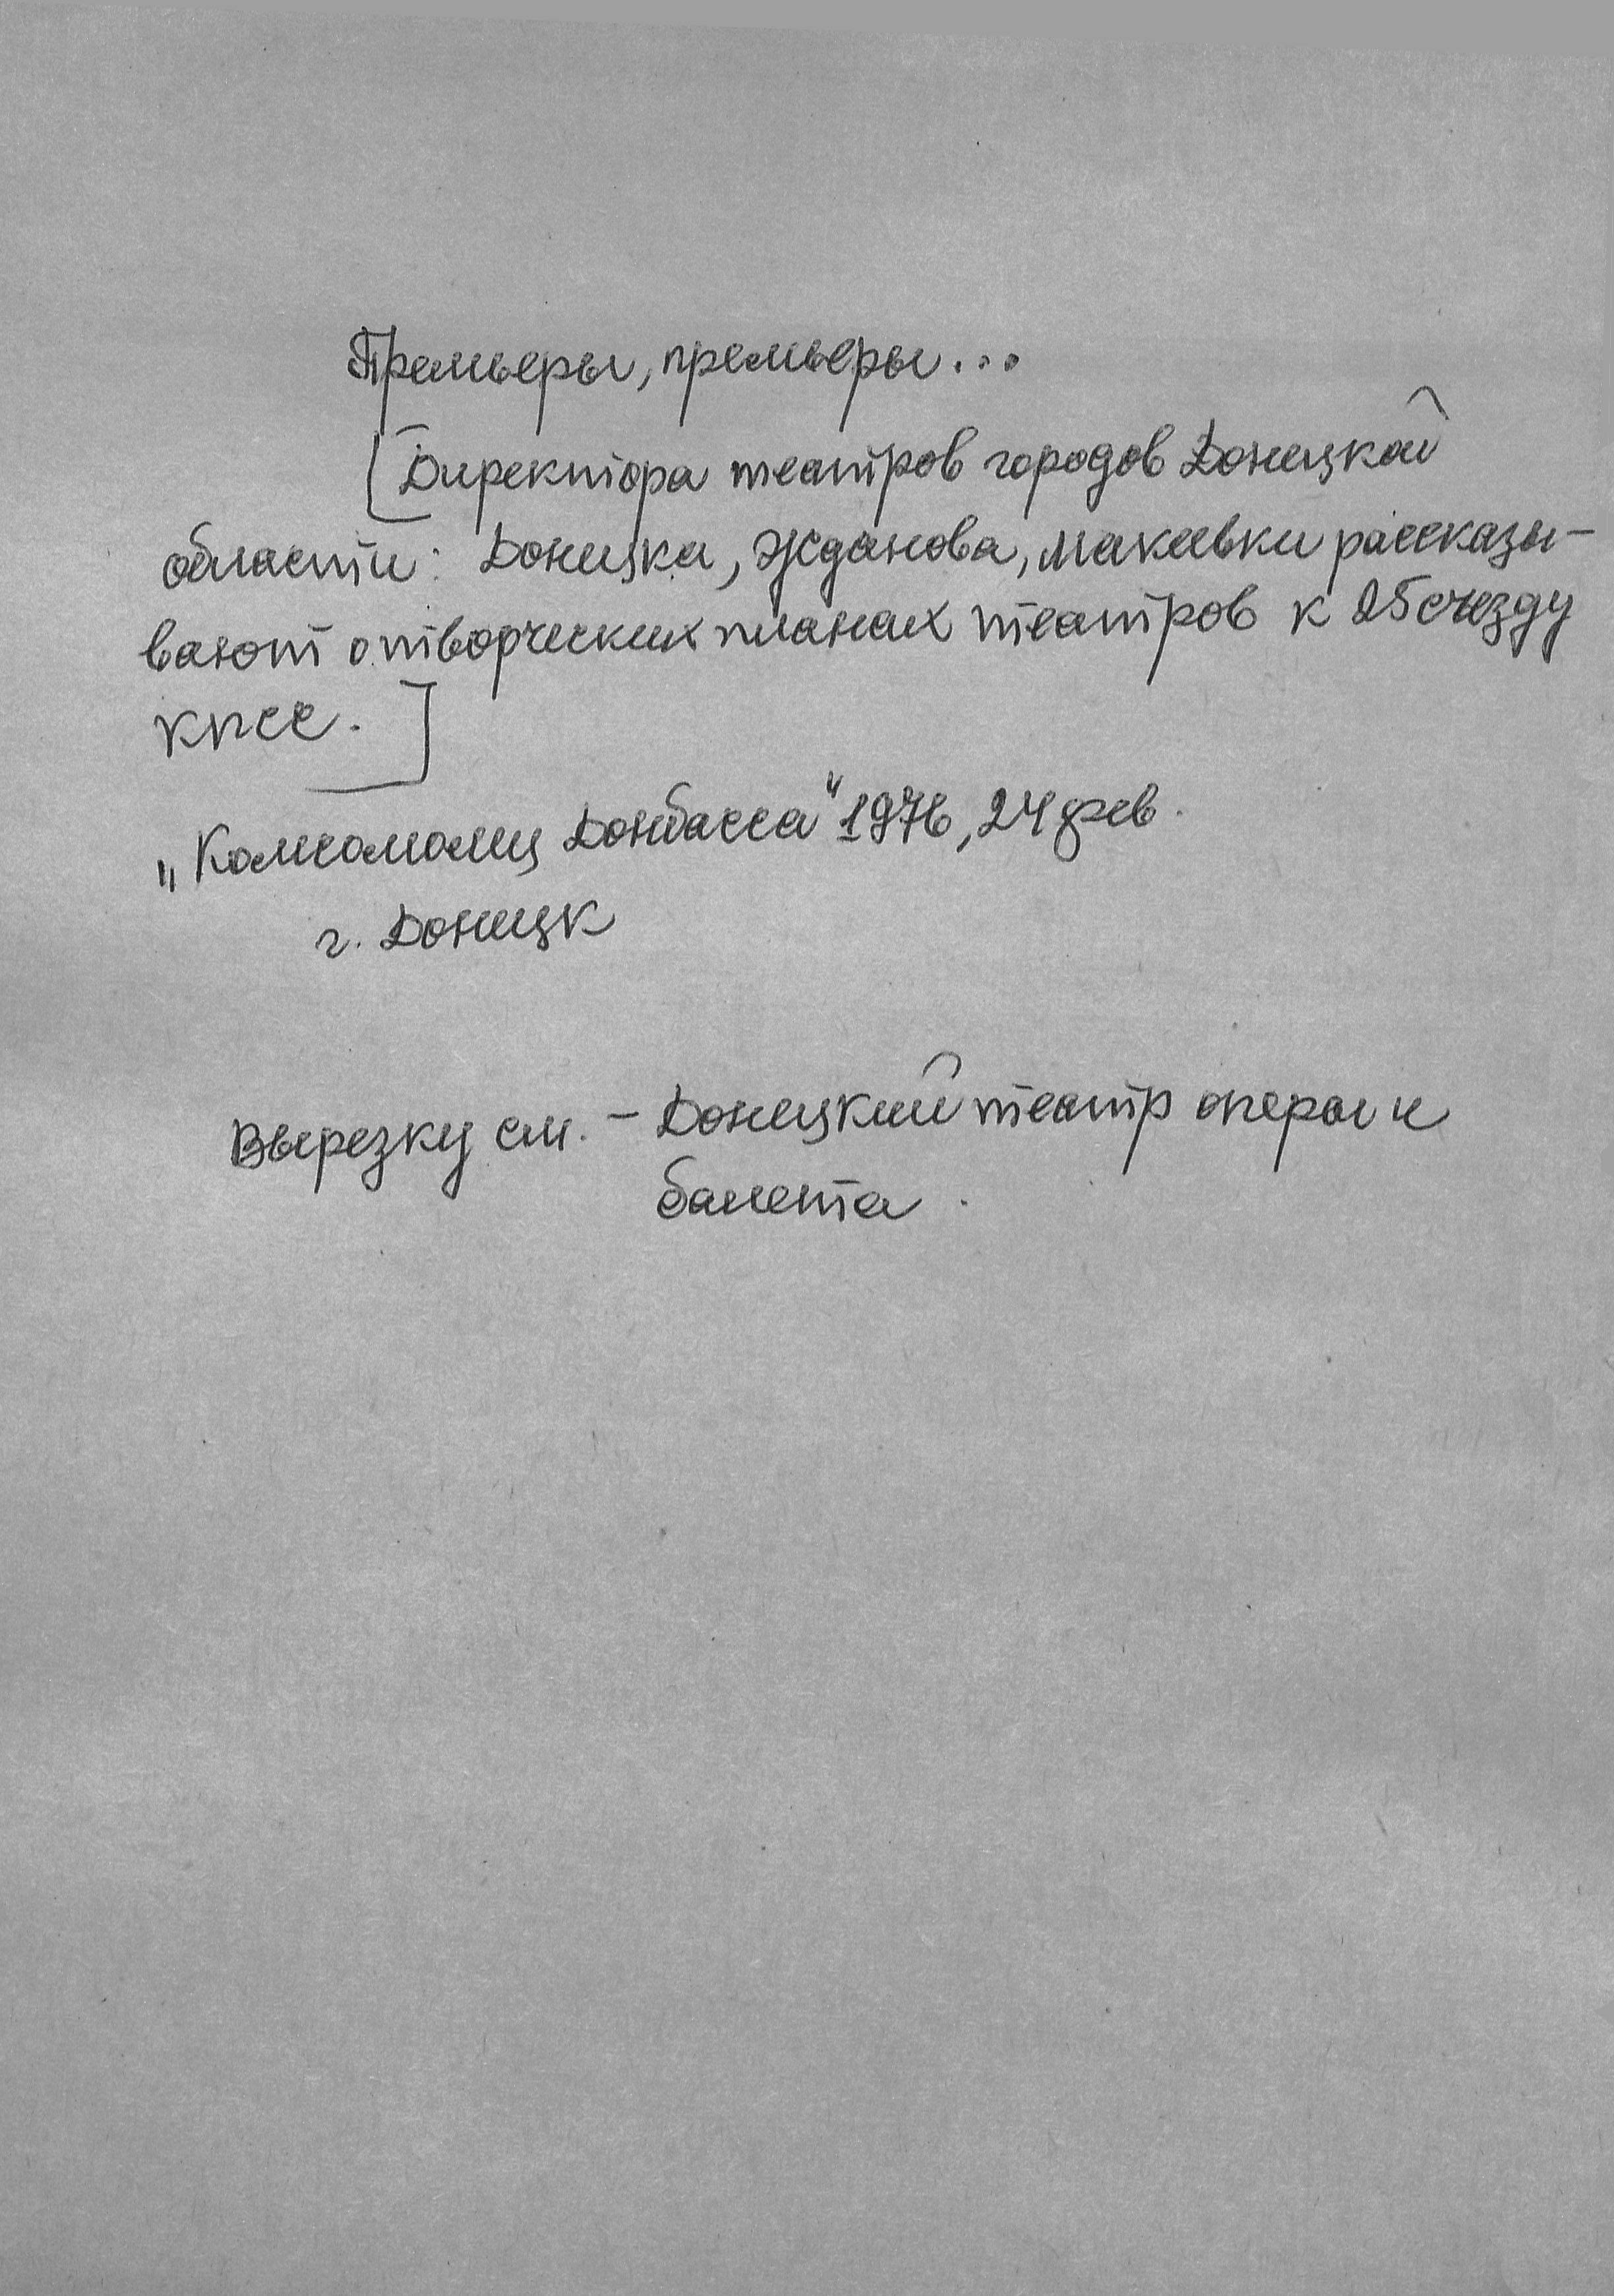 Премьеры, премьеры...
[Директора театров городов Донецкой
области: Донецка, Жданова, Макеевки рассказы-
вают о творческих планах театров к 25 съезду
КПСС.]
„Комсомолец Донбасса" 1976, 24 фев.
г. Донецк
Вырезку см. – Донецкий театр оперы и
балета.